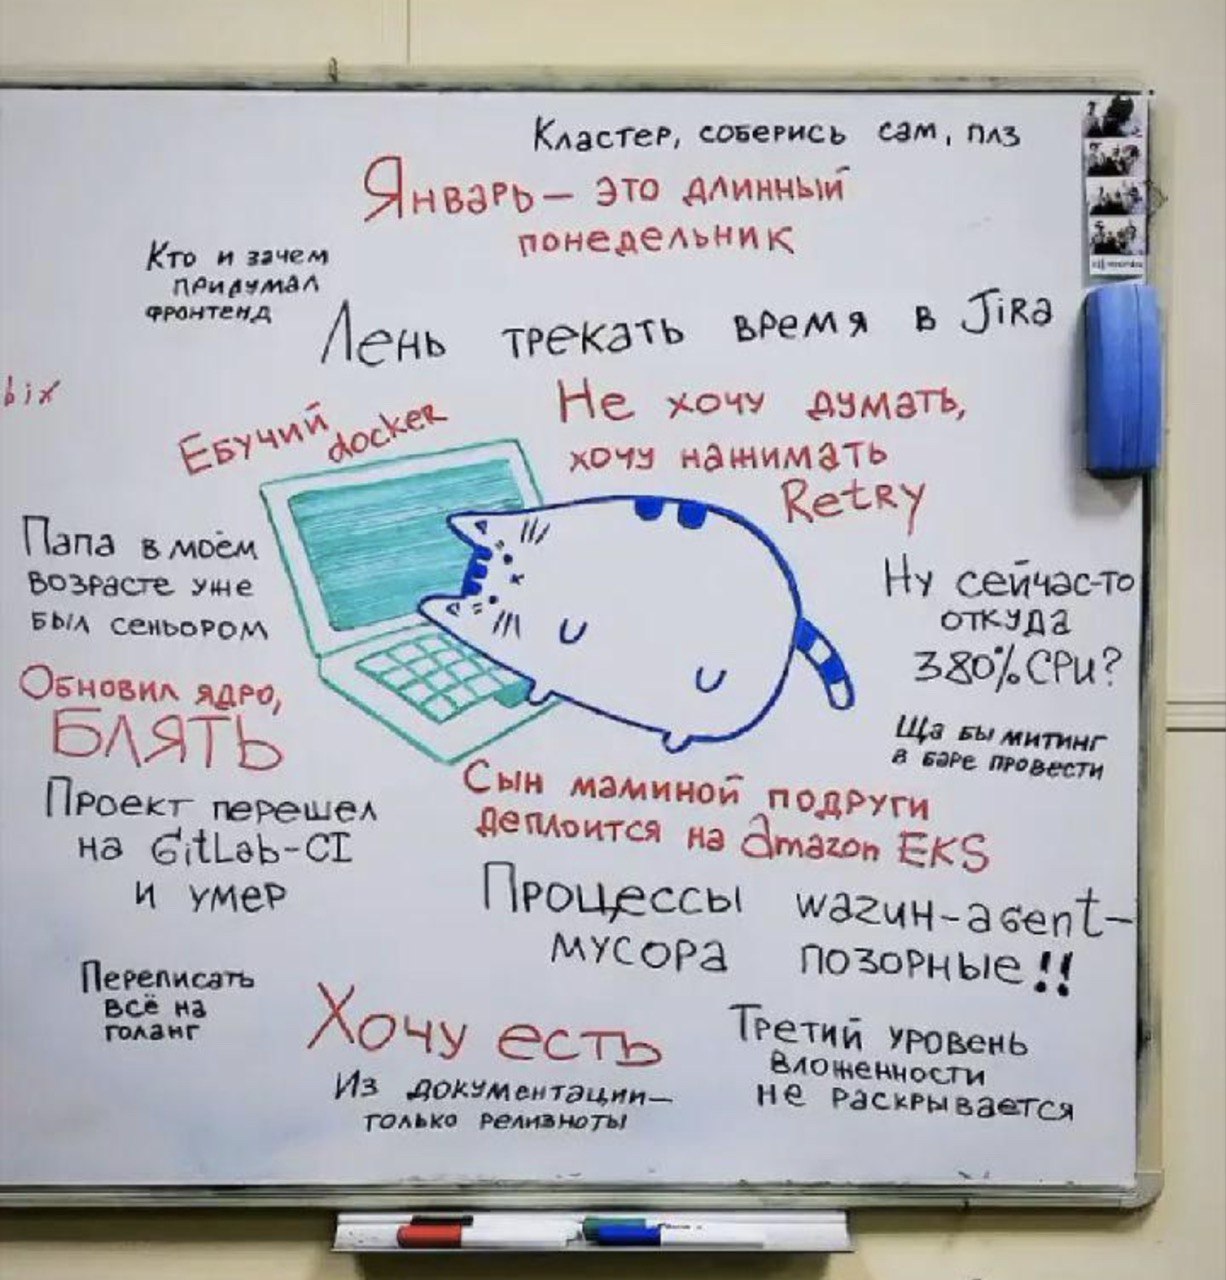 Кластер, соберись сам, плз
Январь — это длинный
понедельник
Кто и зачем
придумал
фронтенд
Лень трекать время в Jira
bix
Ебучий
docker
Не хочу думать,
хочу нажимать
Retry
Папа в моём
возрасте уже
был сеньором
Ну сейчас-то
откуда
380% CPU?
Обновил ядро,
БЛЯТЬ
Ща бы митинг
в баре провести
Проект перешел
на GitLab-CI
и умер
Сын маминой подруги
деплоится на Amazon EKS
Процессы wazuh-agent-
мусора позорные!!
Переписать
всё на
голанг
Хочу есть
Из документации—
только релизноты
Третий уровень
вложенности
не раскрывается